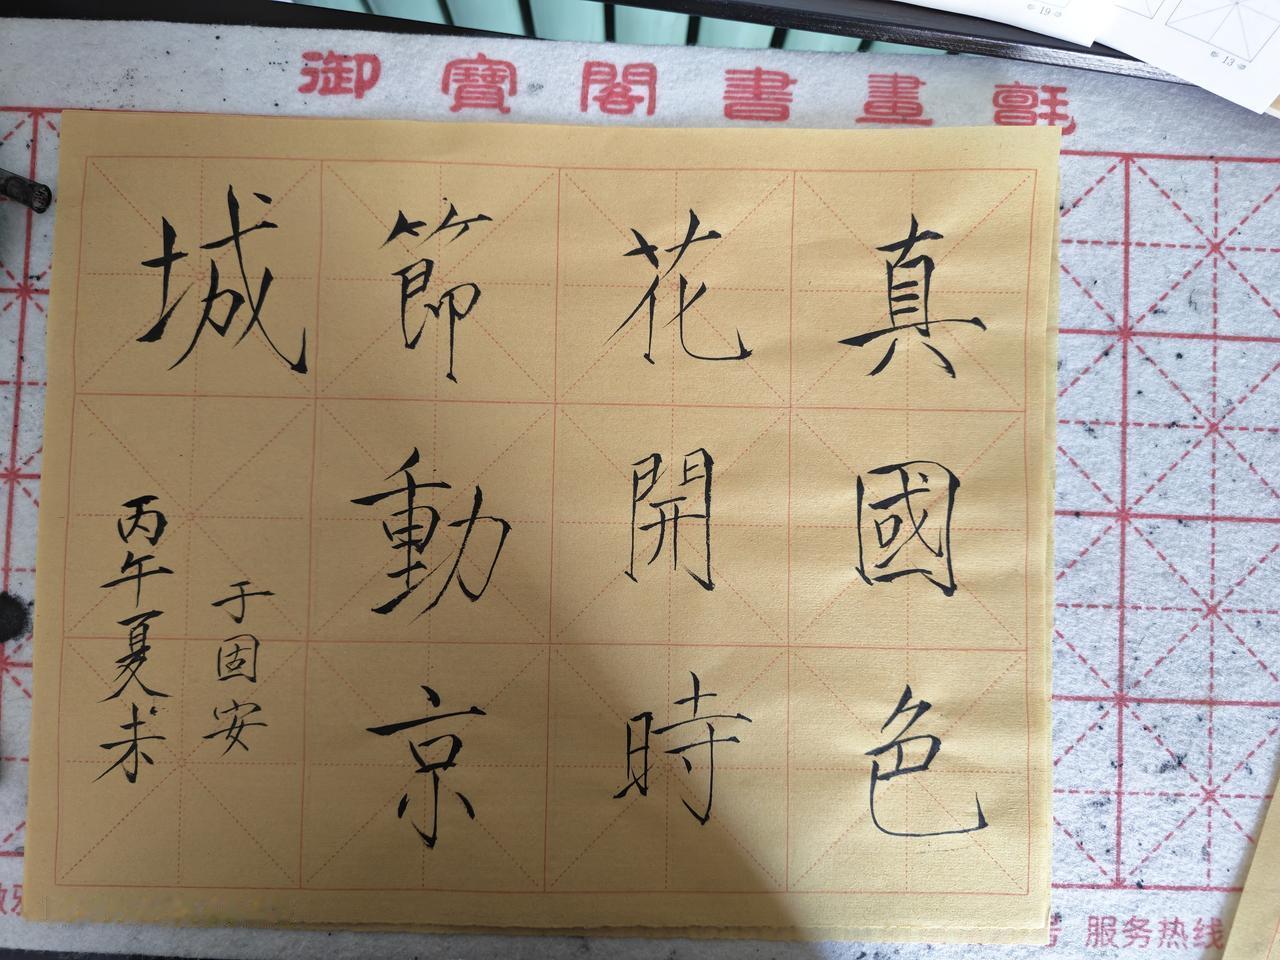 御寶閣書畫氈
真國色
花開時
節動京
城
丙午夏末
于固安
服务热线
19
13